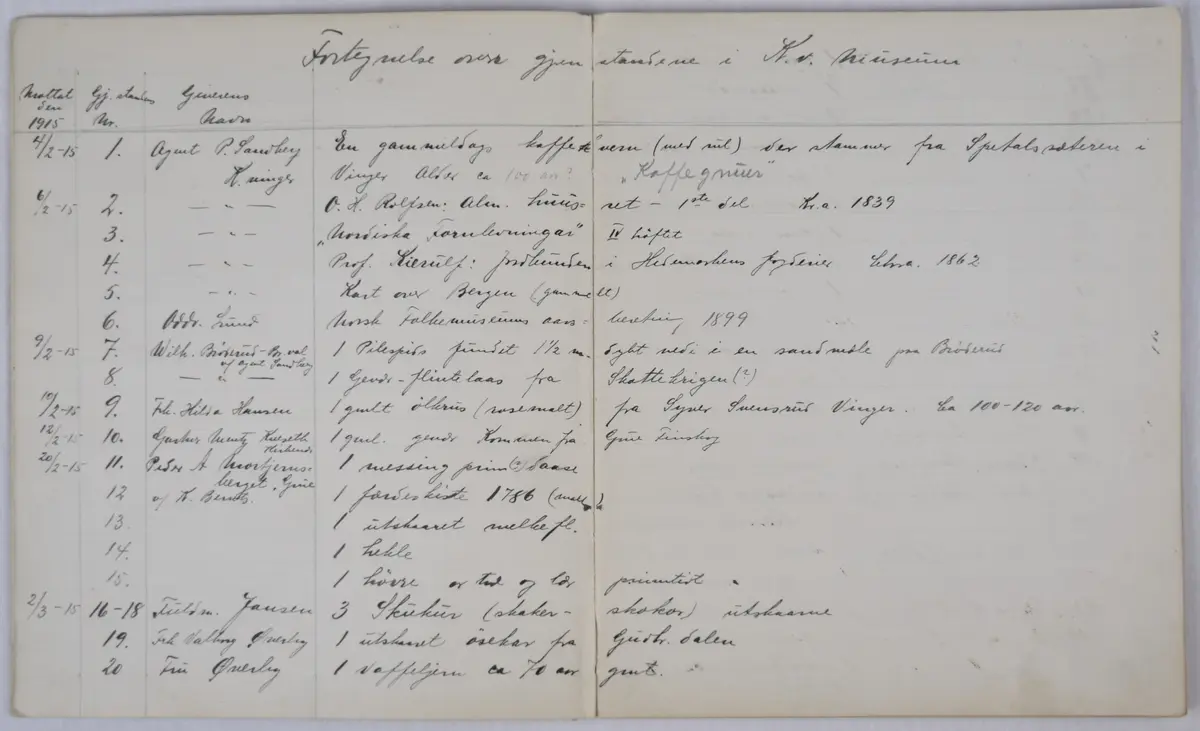 Fortegnelse over gjenstandene i K.v. Museum
Mottat Gj.standens Giverens
den
1915 Nr. Navn
4/2-15 1. Agent P. Sandberg En gammeldags kaffekvern (med uil) der stammer fra Spetalssæteren i
K.vinger Vinger Alder ca 100 aar? "Kaffegnuur"
6/2-15 2. — " — O. H. Rolfsen: Alm. Huus- ret - 1ste del Kr.a. 1839
3. — " — "Nordiska Fornlevningar" IV häftet
4. — " — Prof. Kierulf: Jordbunden i Hedemarkens fogderier Chra. 1862
5. — " — Kart over Bergen (gammelt)
6. Oddv. Lund Norsk Folkemuseums aars- beretin, 1899
9/2-15 7. Wilh. Bröderud-Br.val 1 Pilespids fundet 1½ m. dybt nedi i en sandmæle paa Bröderud
v/ agent Sandberg
8. — " — 1 Gevær-flintelaas fra Skottekrigen (?)
10/2-15 9. Frk. Hilda Hansen 1 gmlt ölkrus (rosemalt) fra Syver Svensrud Vinger. Ca 100-120 aar.
12/2-15 10. Gustav Mentz Kneseth 1 gml. gevær Kommen fra Grue Finskog
20/2-15 11. Peder A Mortjerns- 1 messing prim(?) Daase
berget, Grue
12 v/ K. Bernts. 1 færdeskiste 1786 (malt)
13. 1 utskaaret melkefl.
14. 1 hekle
15. 1 hövre av træ og lær primitivt
2/3-15 16-18 Fuldm. Jansen 3 Skiekur (skaker- skokor) utskaarne
19. Frk Valborg Øverby 1 utskaaret ösekar fra Gudbr.dalen
20 Fru Øverby 1 vaffeljern ca 70 aar gmt.